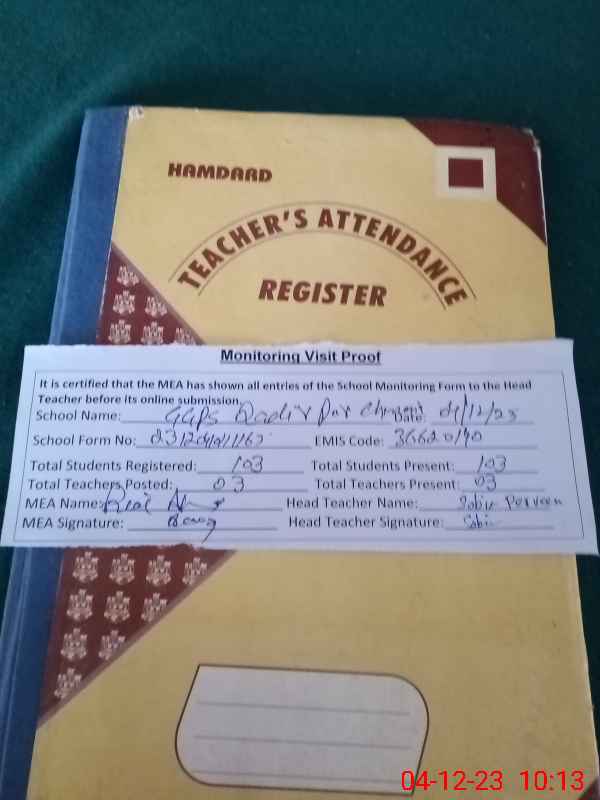 HAMDARD
TEACHER'S ATTENDANCE
REGISTER
Monitoring Visit Proof
It is certified that the MEA has shown all entries of the School Monitoring Form to the Head
Teacher before its online submission.
School Name: GGPS Qadir Pur Date: 04/12/23
School Form No: EMIS Code: 36620140
Total Students Registered: 103 Total Students Present: 103
Total Teachers Posted: 03 Total Teachers Present: 03
MEA Name: Head Teacher Name: Sobia Perveen
MEA Signature: Head Teacher Signature: Sobia
04-12-23 10:13